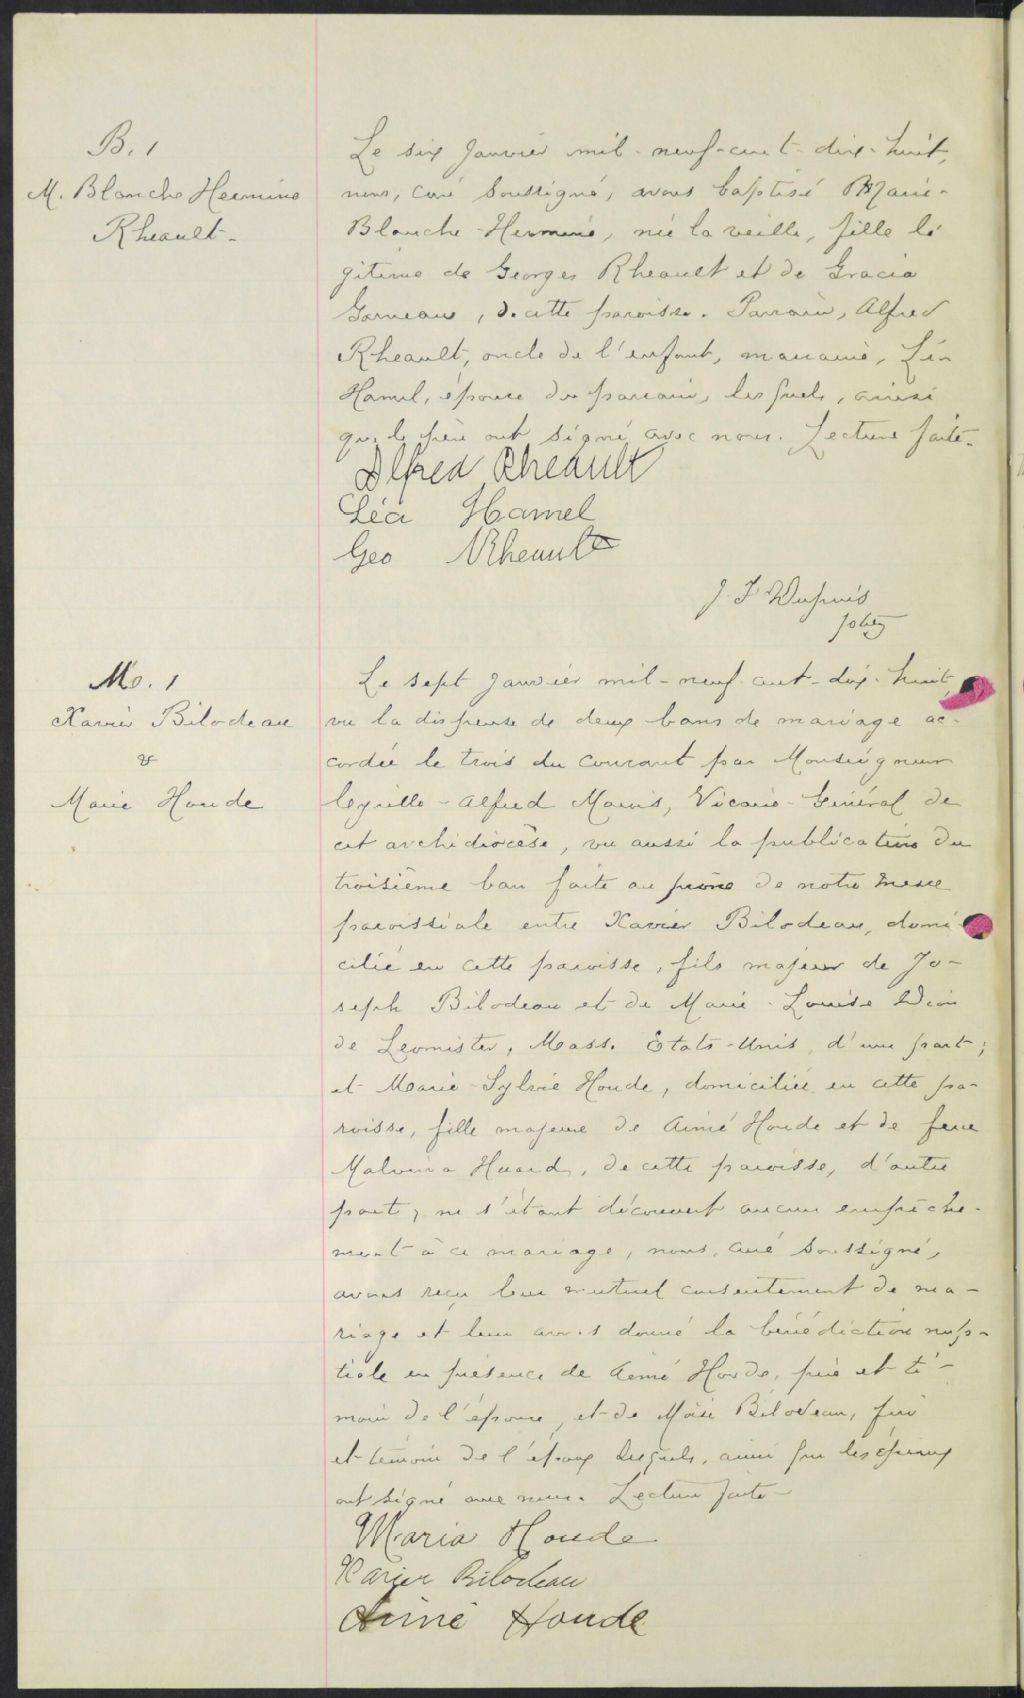 B. 1
M. Blanche Hermine
Rheault.
Le six Janvier mil-neuf-cent-dix-huit,
nous, curé soussigné, avons baptisé Marie-
Blanche-Hermine, née la veille, fille lé
gitime de Georges Rheault et de Gracia
Garneau, de cette paroisse. Parrain, Alfred
Rheault, oncle de l'enfant, marraine, Léa
Hamel, épouse du parrain, lesquels, ainsi
que le père ont signé avec nous. Lecture faite.
Alfred Rheault
Léa Hamel
Geo Rheault
J. F. Dupuis
ptre
Mo. 1
Xavier Bilodeau
&
Marie Houde
Le sept Janvier mil-neuf-cent-dix-huit,
vu la dispense de deux bans de mariage ac-
cordée le trois du courant par Monseigneur
Cyrille-Alfred Marois, Vicaire-Général de
cet archidiocèse, vu aussi la publication du
troisième ban faite au prône de notre messe
paroissiale entre Xavier Bilodeau, domi
cilié en cette paroisse, fils majeur de Jo-
seph Bilodeau et de Marie-Louise Dion
de Leomister, Mass. Etats-Unis, d'une part;
et Marie-Sylvie Houde, domiciliée en cette pa-
roisse, fille majeure de Aimé Houde et de feue
Malvina Huard, de cette paroisse, d'autre
part; ne s'étant découvert aucun empêche-
ment à ce mariage, nous, curé soussigné,
avons reçu leur mutuel consentement de ma-
riage et leur avons donné la bénédiction nup-
tiale en présence de Aimé Houde, père et té-
moin de l'épouse, et de Moïse Bilodeau,
et témoin de l'époux lesquels, ainsi que les époux
ont signé avec nous. Lecture faite
Maria Houde
Xavier Bilodeau
Aimé Houde